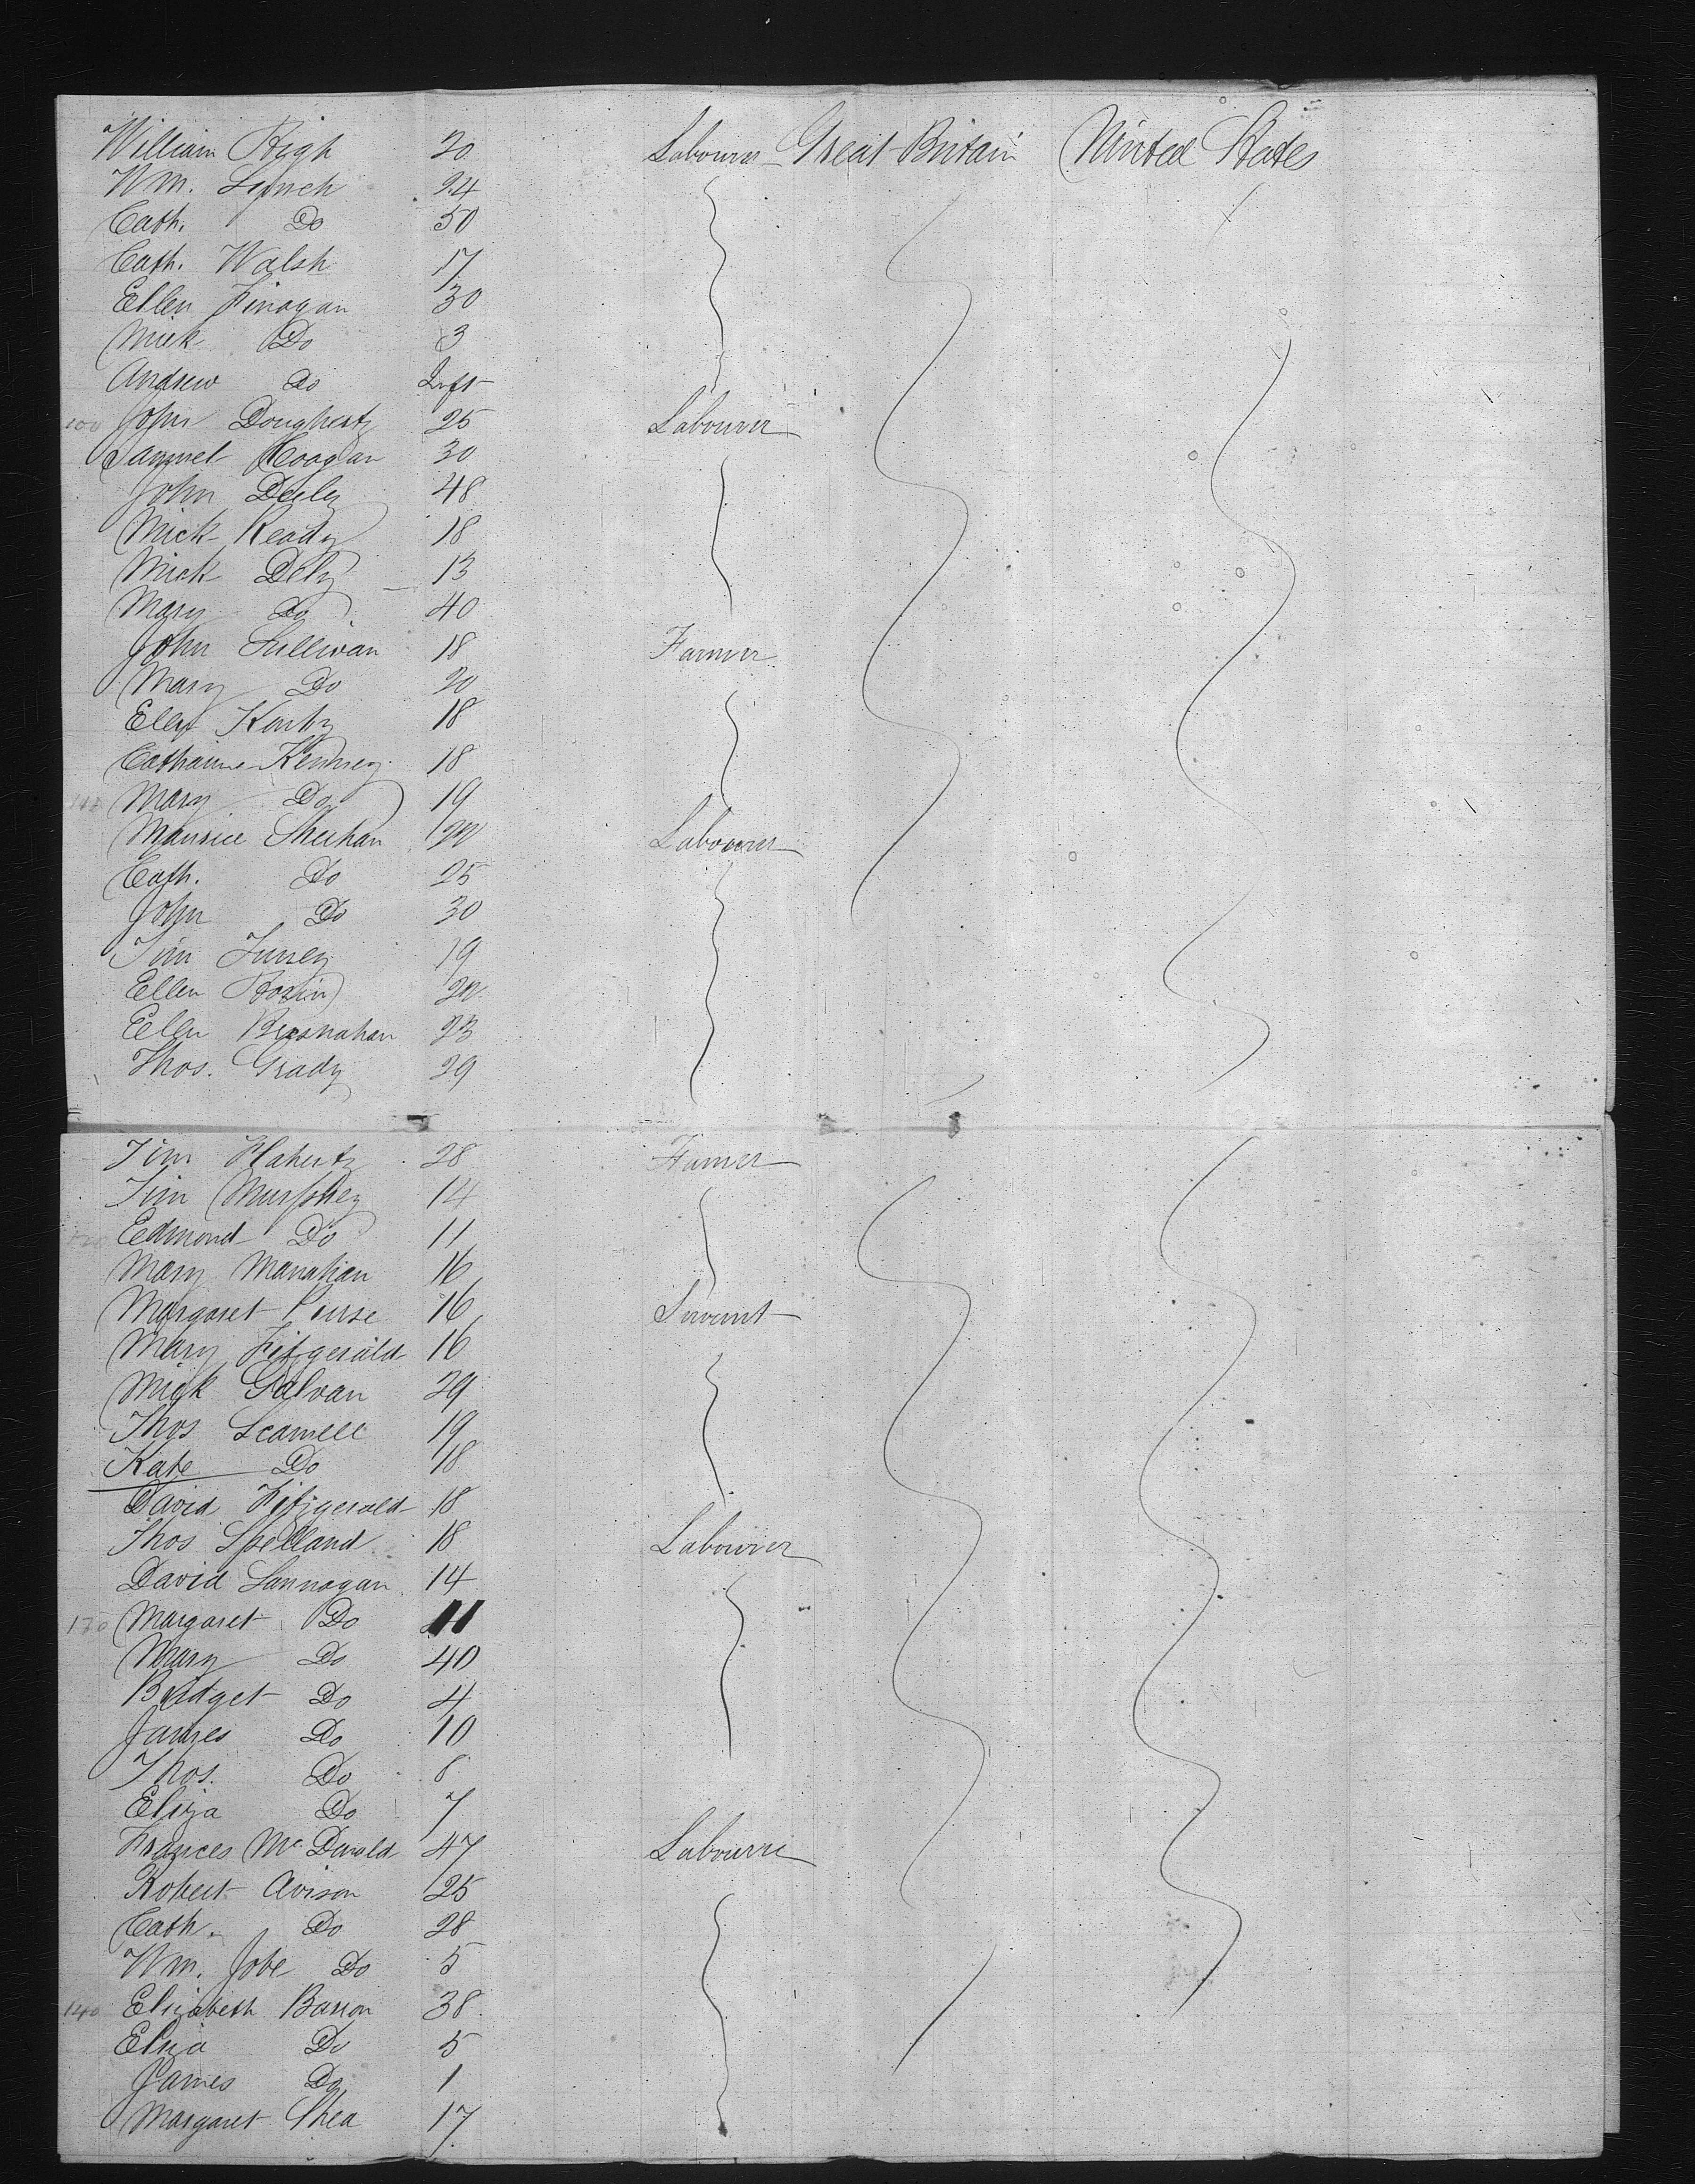 William High 20 Labourer Great Britain United States
Wm. Lynch 24
Cath. Do 50
Cath. Walsh 17
Ellen Finagan 30
Mick Do 3
Andrew Do Inft
100 John Dougherty 25 Labourer
Samuel Coogan 30
John Deely 48
Mick Ready 18
Mick Dely 13
Mary Do 40
John Sullivan 18 Farmer
Mary Do 20
Ellen 18
Catharine Kenney 18
Mary Do 19
Maurice Sheehan 22 Labourer
Cath. Do 25
John Do 30
Tim 19
Ellen 22
Ellen Brosnahan 23
Thos. Grady 29
Tim Flaherty 28 Farmer
Tim Murphey 14
Edmond Do 11
Mary Manahan 16
Margaret Purse 16 Servant
Mary Fitzgerald 16
Mick Galvan 29
Thos Scamell 19
Kate Do 18
David Fitzgerald 18
Thos Spelland 18 Labourer
David Lannagan 14
130 Margaret Do 11
Mary Do 40
Bridget Do 4
James Do 10
Thos. Do 8
Eliza Do 7
Frances McDonald 47 Labourer
Robert Avison 25
Cath. Do 28
Wm. Jobe Do 5
140 Elizabeth Barron 38
Eliza Do 5
James Do 1
Margaret Shea 17